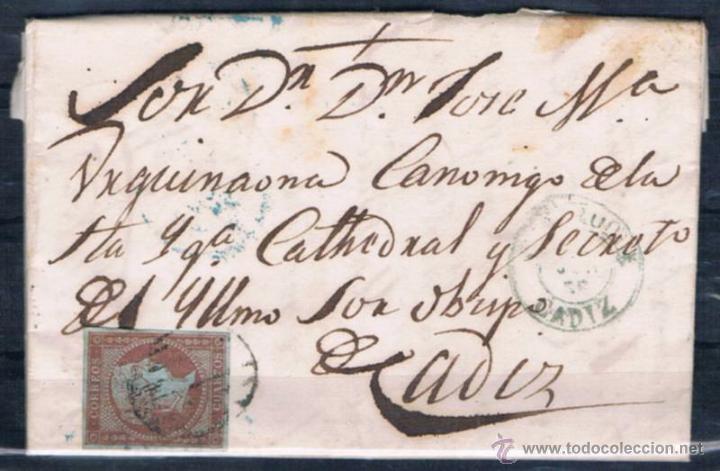 Sor Dn. Dor Jose Ma
Urquinaona Canonigo de la
Sta Yga Cathedral y Secreto
del Yllmo Sor obispo
de
Cadiz
CADIZ
CORREOS
todocoleccion.net